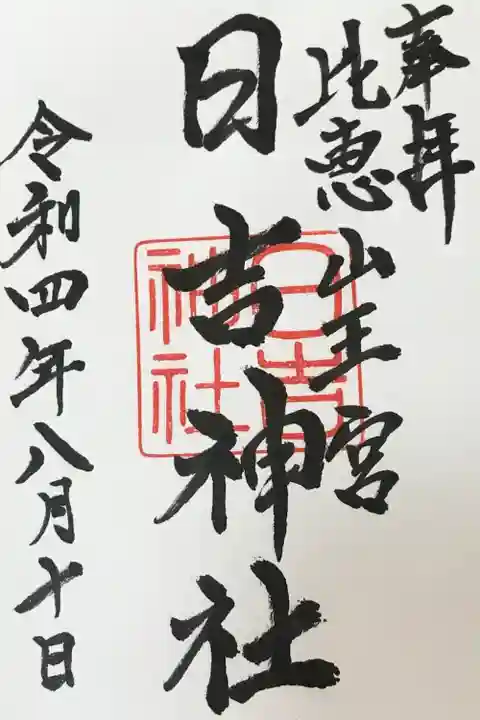 奉拝
比恵
山王宮
日吉神社
日吉
神社
令和四年八月十日